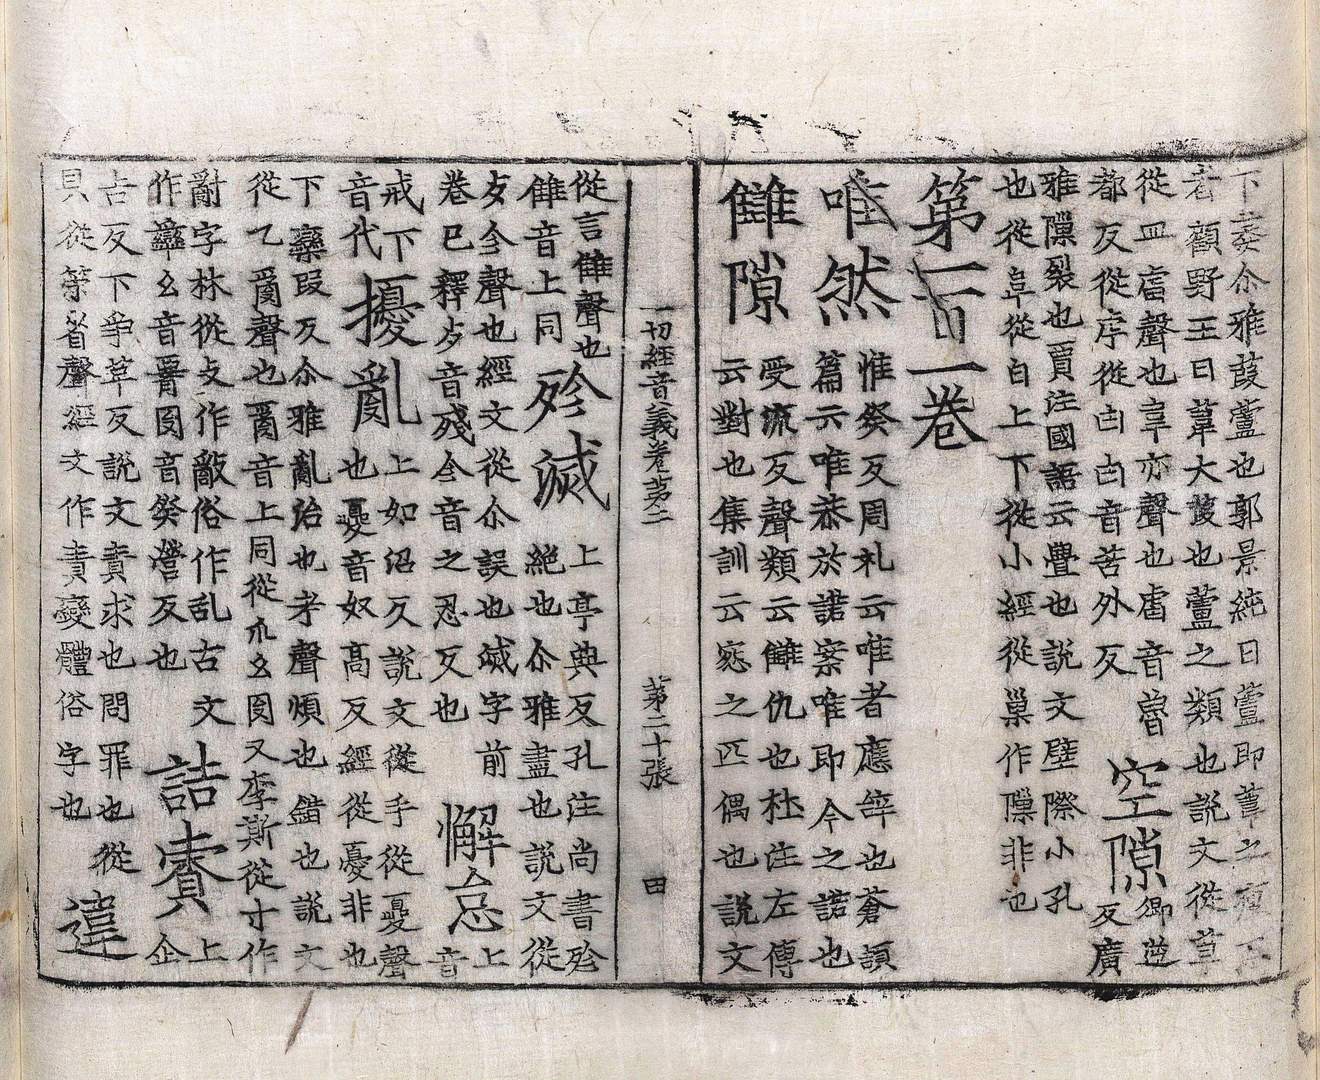 下委尒雅葭蘆也郭景純曰蘆即葦之類下
者顧野王曰葦大葭也蘆之類也說文從草
從皿䖒聲也韋亦聲也䖒音魯
都反從虍從𠙹𠙹音苦外反
空隙
卿逆
反廣
雅隟裂也賈注國語云舋也說文壁際小孔
也從阜從白上下從小經從巢作隟非也
第二百一卷
唯然
惟癸反周礼云唯者應辝也蒼頡
篇云唯恭於諾案唯即今之諾也
讎隙
受流反聲類云讎仇也杜注左傳
云對也集訓云怨之匹偶也說文
一切經音義卷第二
第二十張
田
從言雔聲也
雔音上同
殄滅
上亭典反孔注尚書殄
絕也尒雅盡也說文從
歺㐱聲也經文從尒誤也滅字前
卷已釋歺音殘㐱音之忍反也
懈怠
上
音
戒下
音代
擾亂
上如沼反說文從手從夒聲
也夒音奴高反經從憂非也
下欒段反尒雅亂治也孝聲煩也錯也說文
從乙𤔔聲也𤔔音上同從爪幺冂又李斯從寸作
字林從攴作敵俗作乱古文
作幺音冂音癸營反也
詰責
上
企
古反下爭草反說文責求也問罪也從
貝從省聲經文作責變體俗字也
違